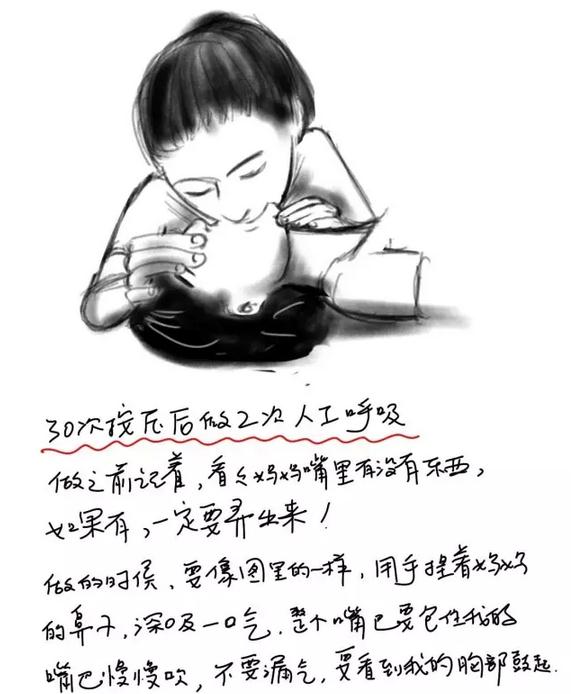 30次按压后做2次人工呼吸
做之前记着,看看妈妈嘴里有没有东西,
如果有,一定要弄出来!
做的时候,要像图里的一样,用手捏着妈妈
的鼻子,深吸一口气.整个嘴巴要包住我的
嘴巴慢慢吹,不要漏气,要看到我的胸部鼓起.